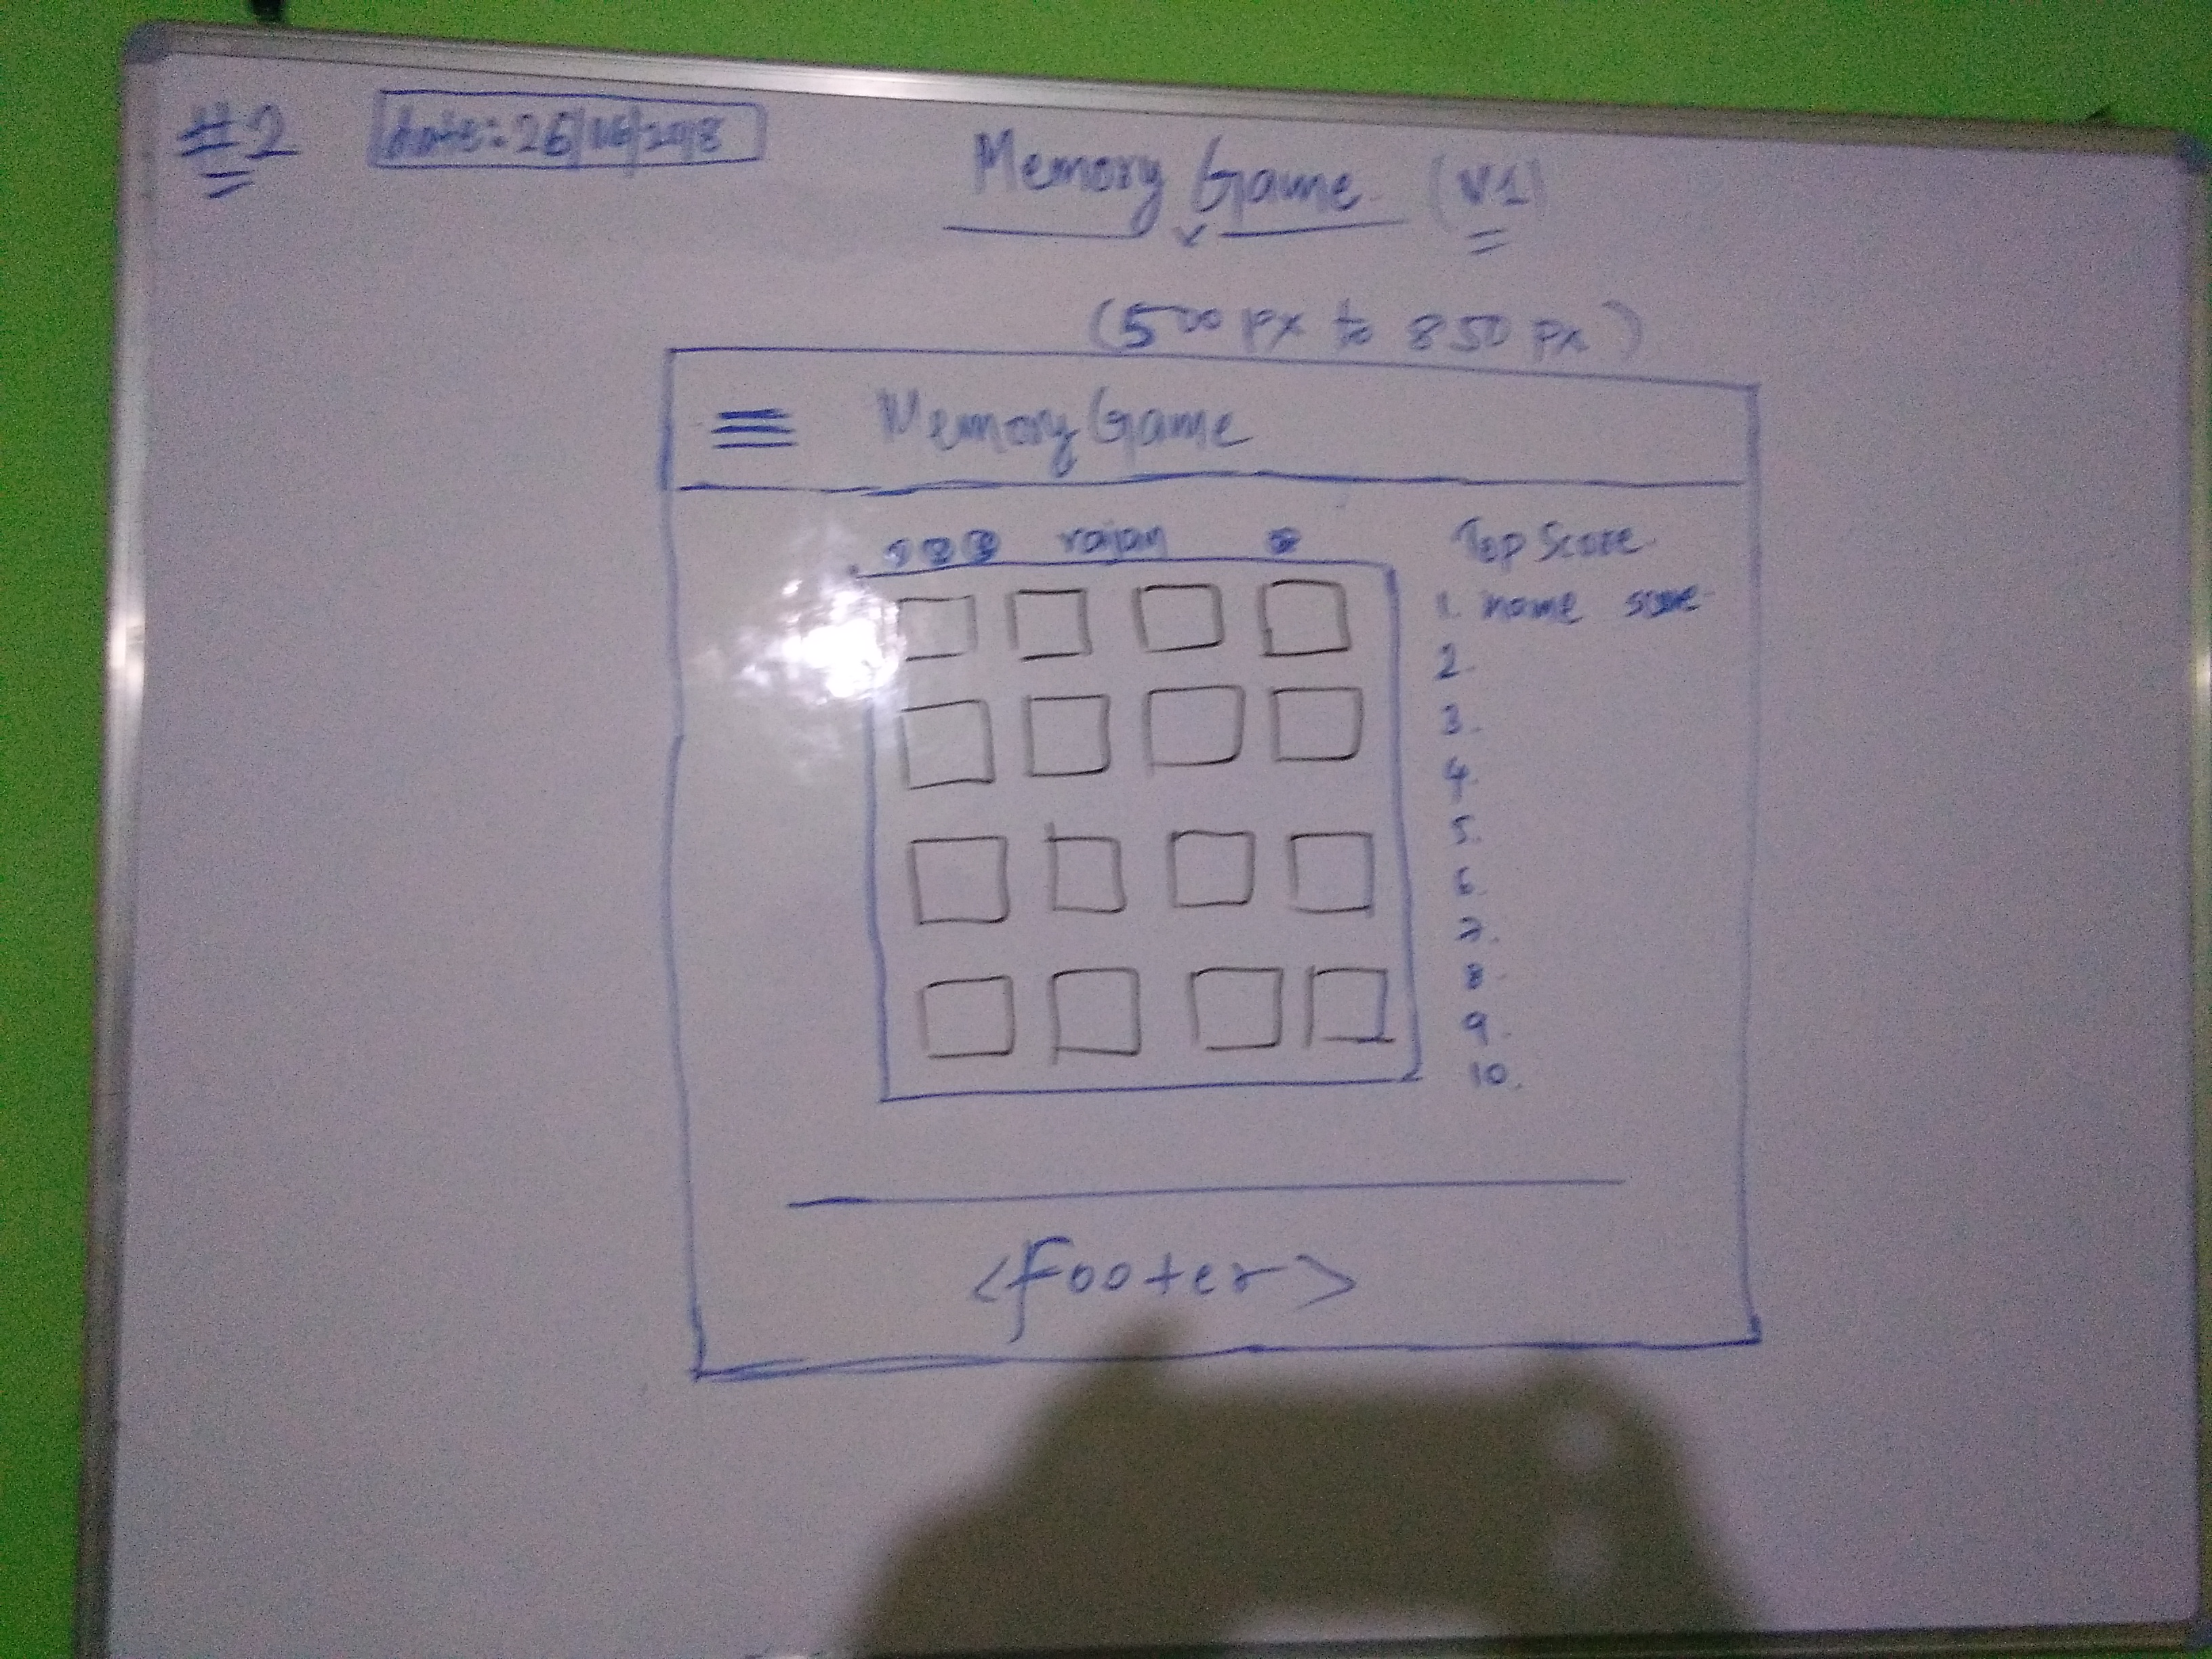 #2
date: 26/06/2018
Memory Game (V1)
(500 px to 850 px)
Memory Game
rajan
Top Score
1. name score
2.
3.
4.
5.
6.
7.
8.
9.
10.
<footer>